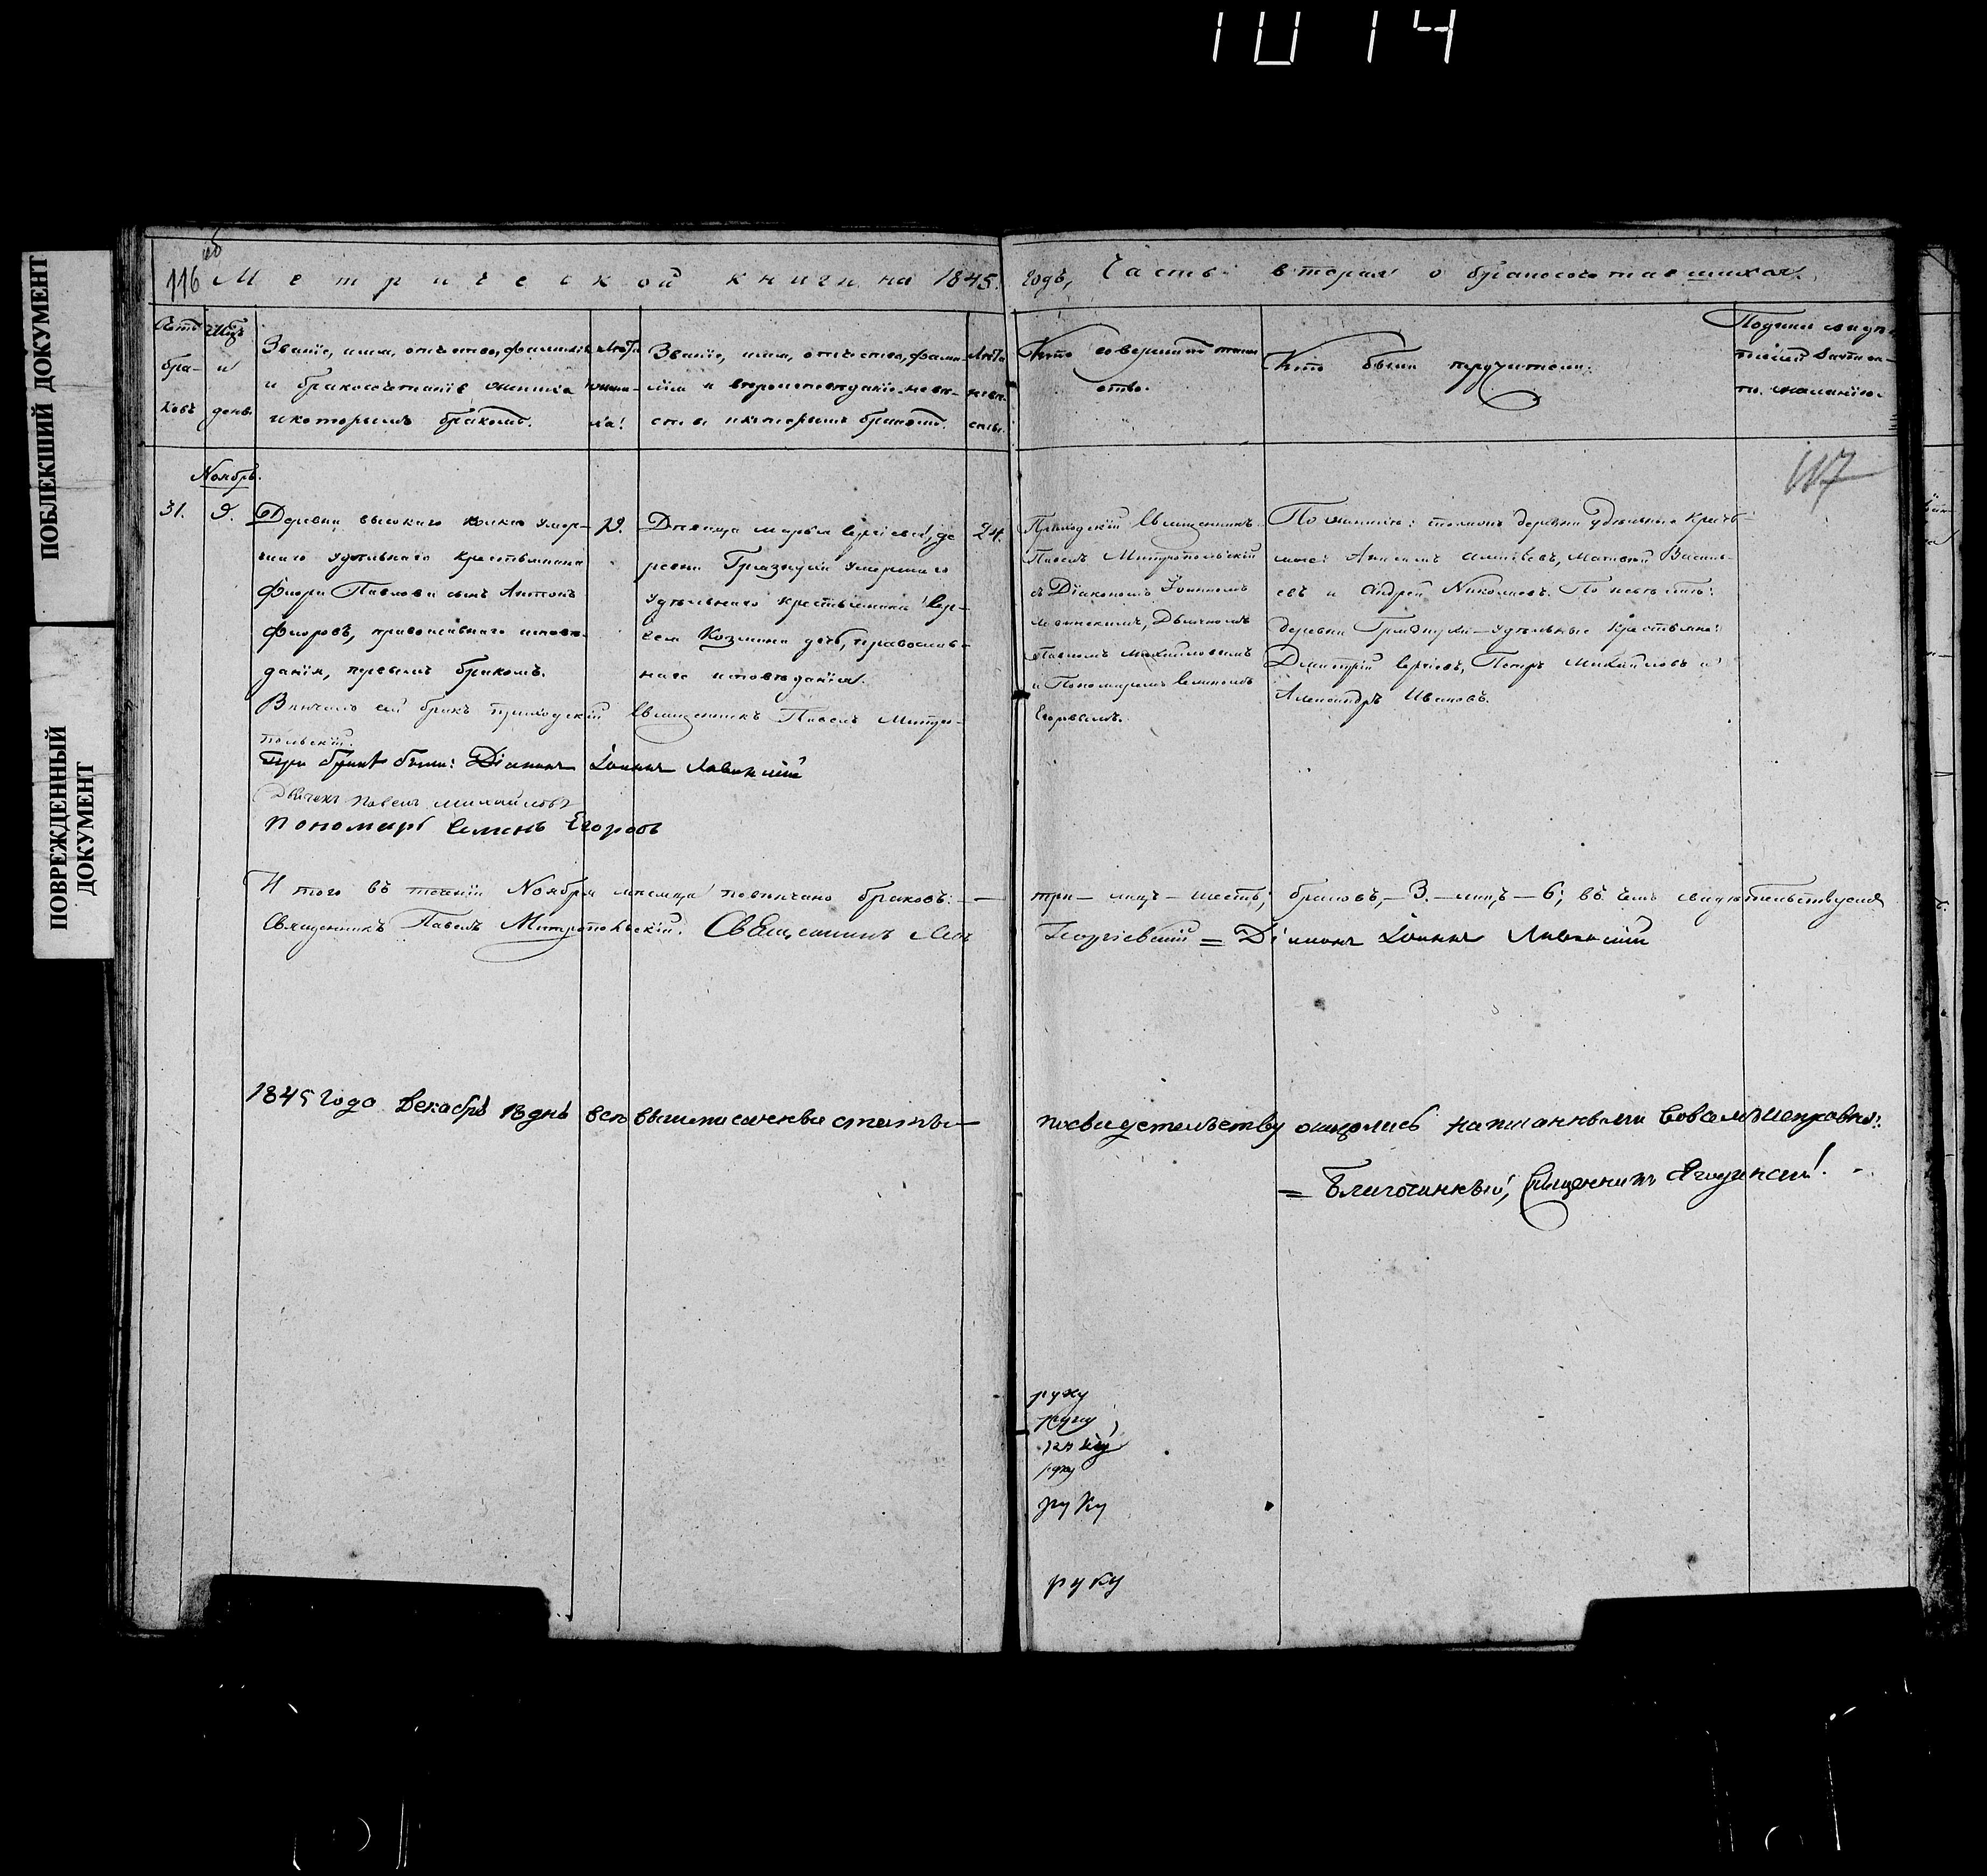 1014
ПОБЛЕКШИЙ ДОКУМЕНТ
ПОВРЕЖДЕННЫЙ
ДОКУМЕНТ
116 Метрической книги на 1845.
Годъ, Часть вторая о бракосочетавшихся.
бра-
ковъ
и
день.
Званіе, имя, отчество, фамилія
и
и которымъ бракомъ.
Лѣта
жени-
ха.
Званіе, имя, отчество, фами-
лія и вѣроисповѣданіе невѣ-
сты и которымъ бракомъ.
Лѣта
невѣ-
сты.
Кто совершилъ таин
ство.
Кто были поручители.
117
Ноябрь.
31.
9.
Деревни умер-
шаго удѣльнаго крестьянина
Флора Павлова сынъ Антонъ
Флоровъ, православнаго исповѣ-
данія, первымъ бракомъ.
19.
Дѣвица Марья Сергіева, де
ревни Грязнухи умершаго
удѣльнаго крестьянина Сер-
гея Козмина дочь, православ-
наго исповѣданія.
24.
Приходскій Священникъ
Павелъ Митропольскій
съ Діакономъ Іоанномъ
Дьячкомъ
Павломъ Михайловымъ
и Пономаремъ Семеномъ
Егоровымъ.
По женихѣ: деревни удѣльные кресть-
яне: Матвей Василь-
евъ и Андрей Николаевъ. По невѣстѣ:
деревни Грязнухи удѣльные крестьяне:
Дмитрій Сергѣевъ, Петръ Михайловъ и
Александръ Ивановъ.
Вѣнчалъ сей бракъ приходскій Священникъ Павелъ Митро-
польскій.
При бракѣ были: Діаконъ Іоаннъ
Дьячекъ Павелъ Михайловъ
Пономарь Семенъ Егоровъ
Итого въ теченіи Ноября мѣсяца повѣнчано браковъ: —
три — лицъ — шесть; браковъ, — 3. — лицъ — 6; въ чемъ свидѣтельствуемъ
Священникъ Павелъ Митропольскій. Священникъ
Георгіевскій = Діаконъ Іоаннъ
1845 Года Декабря 13 днь всѣ вышеписанныя статьи —
по свидетельству оказались написанными
= Благочинный, Священникъ
руку
руку
руку
руку
руку
руку